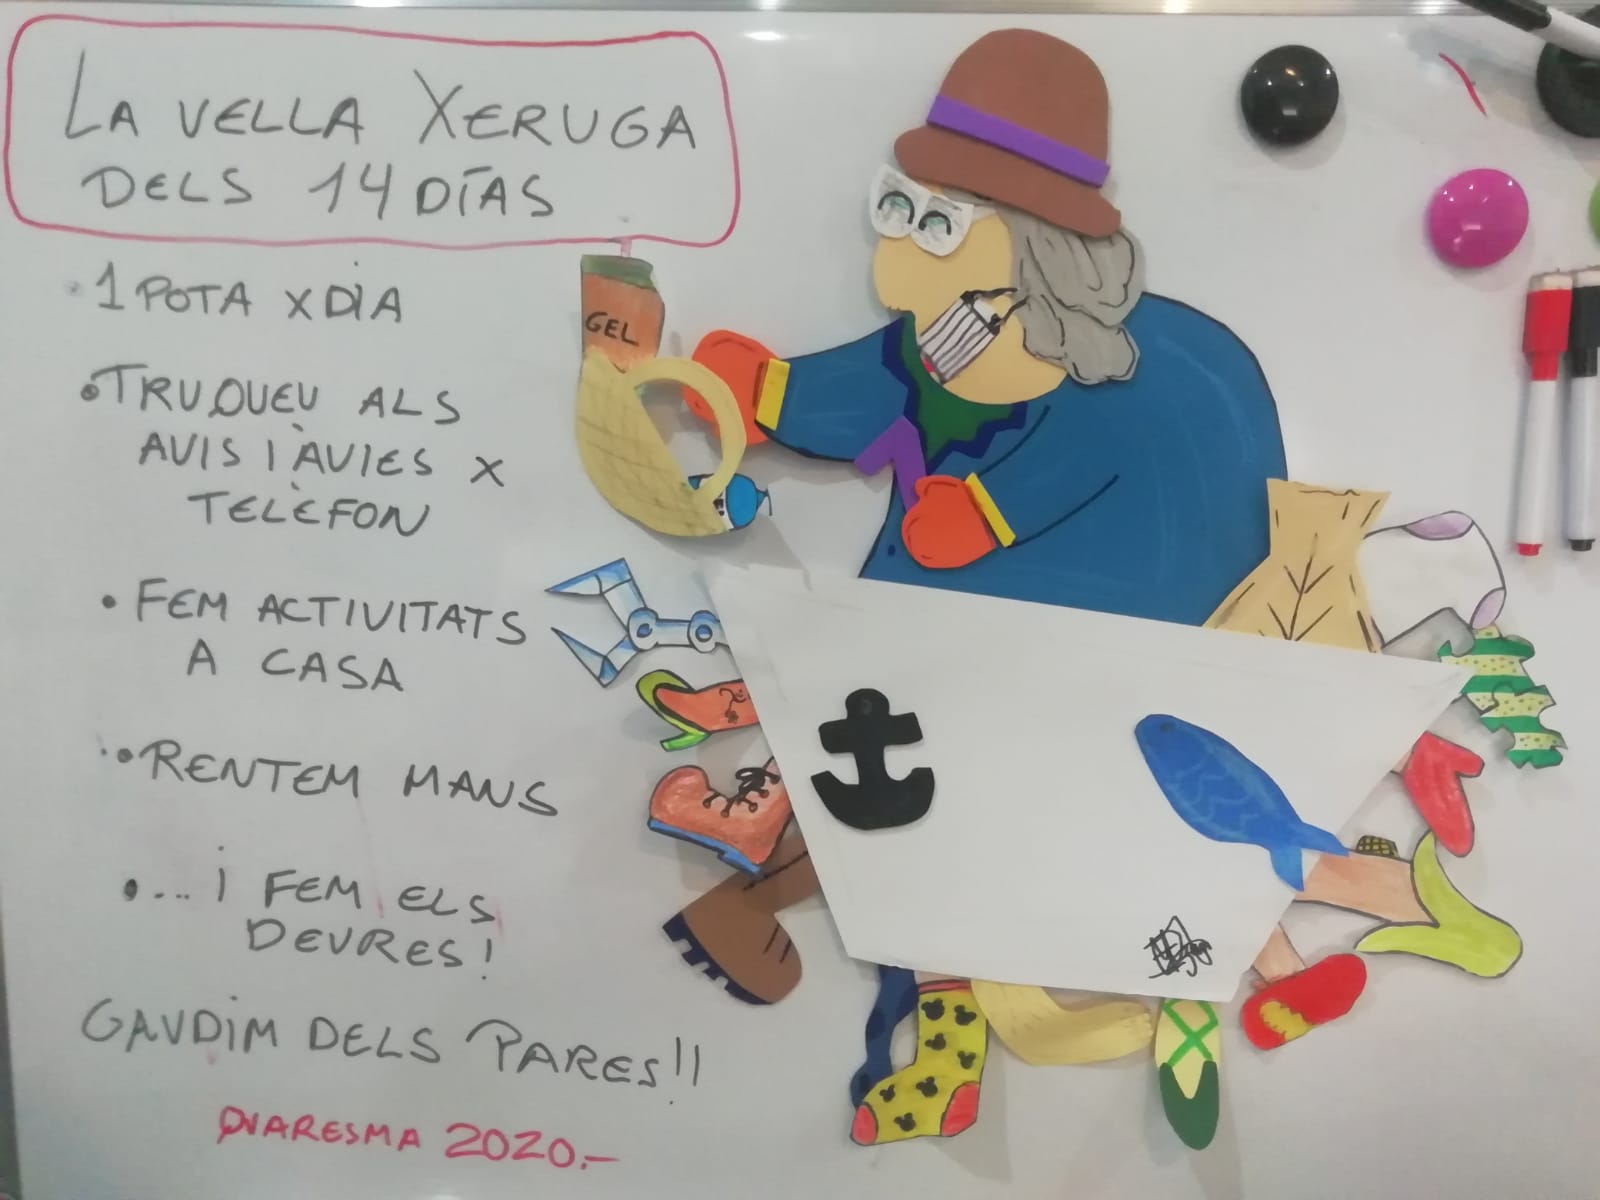 LA VELLA XERUGA
DELS 14 DÍAS
· 1 POTA X DIA
• TRUQUEU ALS
AVIS I ÀVIES X
TELÈFON
• FEM ACTIVITATS
A CASA
• RENTEM MANS
• ... I FEM ELS
DEURES!
GAUDIM DELS PARES!!
QUARESMA 2020.-
GEL